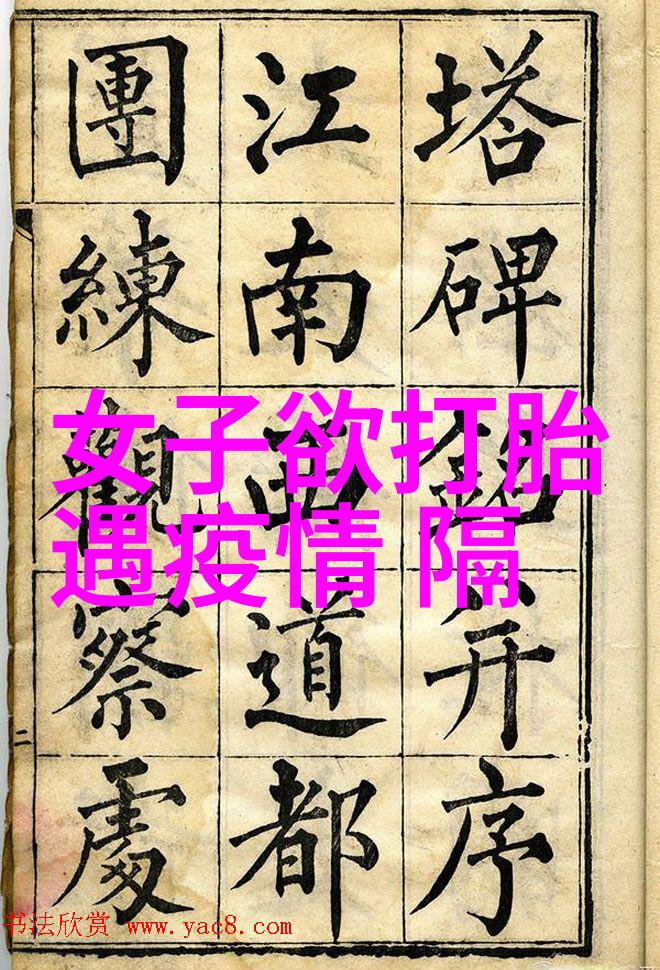 塔碑銘并序
江南西道都
團練觀察處
二
女子欲打胎
遇疫情 隔
书法欣赏 www.yac8.com